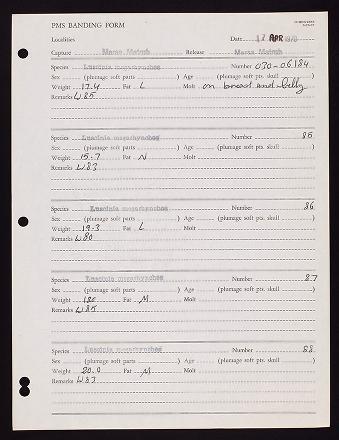 PMS BANDING FORM
Localities Date 17 APR 1978
Capture Mersa Matruh Release Mersa Matruh
Species Luscinia megarhynchos Number 030-06184
Sex (plumage soft parts ) Age (plumage soft pts. skull )
Weight 17.4 Fat L Molt on breast and belly
Remarks W85
Species Luscinia megarhynchos Number 85
Sex (plumage soft parts ) Age (plumage soft pts. skull )
Weight 15.7 Fat N Molt
Remarks W83
Species Luscinia megarhynchos Number 86
Sex (plumage soft parts ) Age (plumage soft pts. skull )
Weight 19.3 Fat L Molt
Remarks W80
Species Luscinia megarhynchos Number 87
Sex (plumage soft parts ) Age (plumage soft pts. skull )
Weight 180 Fat M Molt
Remarks W85
Species Luscinia megarhynchos Number 88
Sex (plumage soft parts ) Age (plumage soft pts. skull )
Weight 20.0 Fat M Molt
Remarks W83